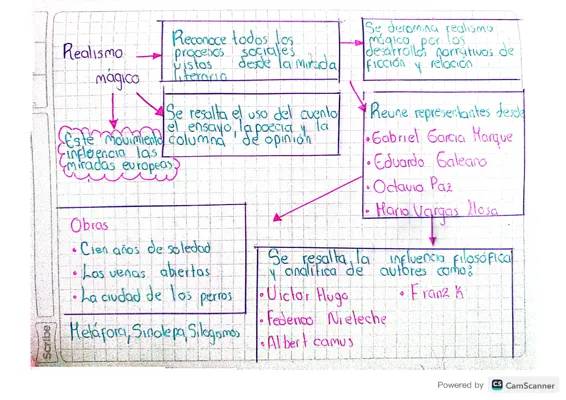 Realismo
mágico
Reconoce todos los
procesos sociales
vistos desde la mirada
literaria
Se denomina realismo
mágico por los
desarrollos narrativos de
ficción y relación
Se resalta el uso del cuento
el ensayo, la poecia y la
columna de opinión
Este movimiento
influencia las
miradas europeas
Reune representantes desde
• Gabriel Garcia Marque
• Eduardo Galeano
• Octavio Paz
• Mario Vargas llosa
Obras
• Cien años de soledad
• Las venas abiertas
• La ciudad de los perros
Metáfora,
Se resalta la influencia filosófica
y analítica de autores como:
• Victor Hugo
• Franz K
• Federico Nieleche
• Albert camus
Scribe
Powered by CS CamScanner